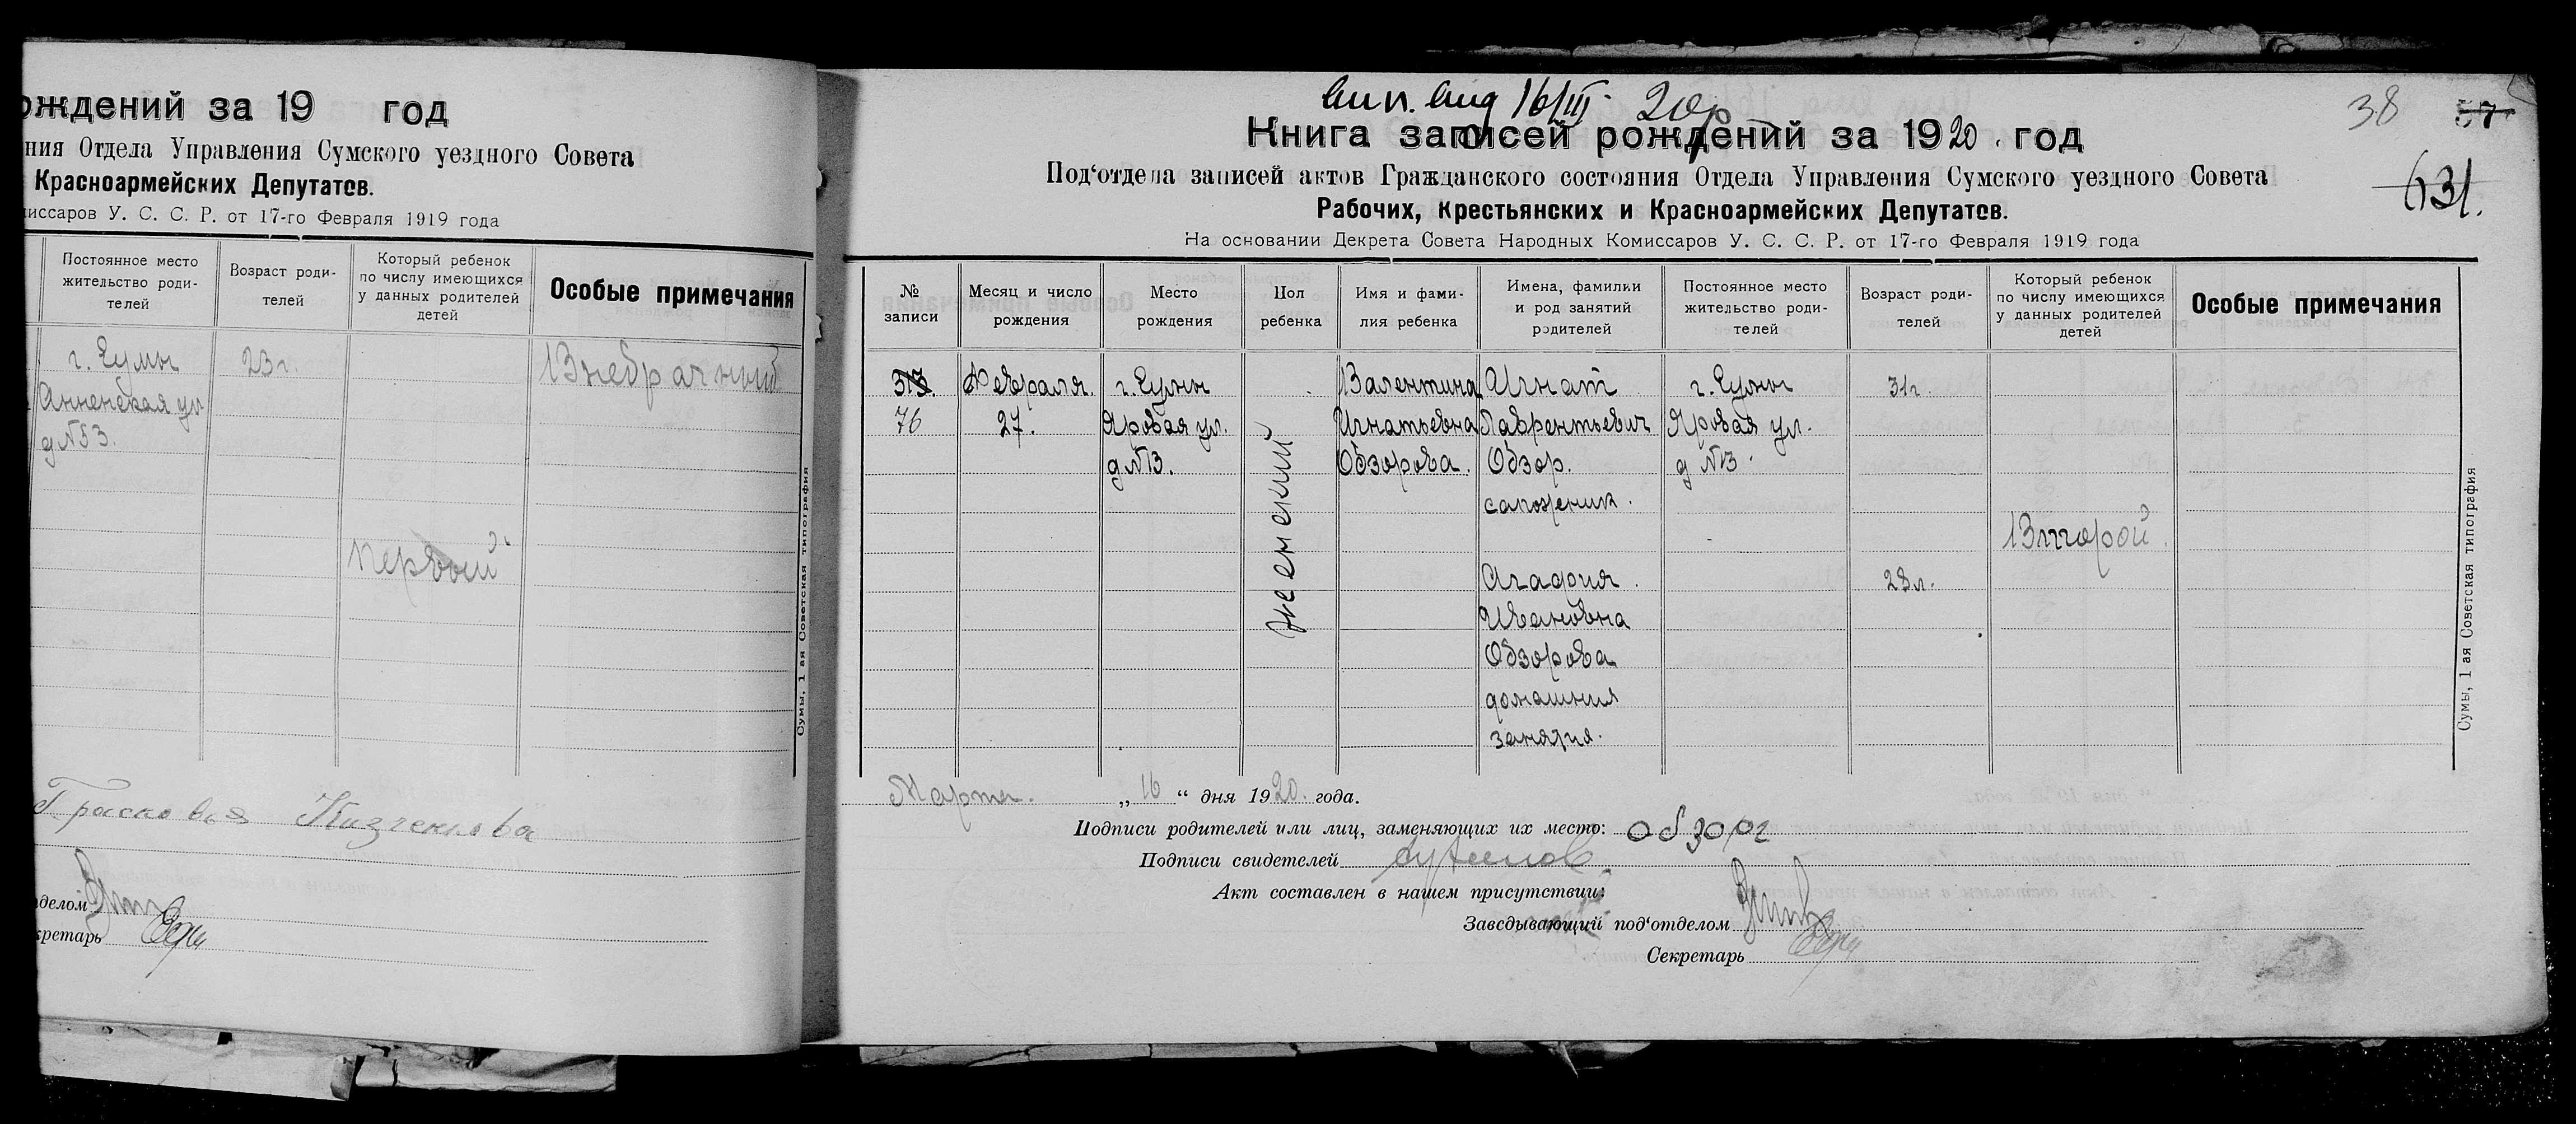 ождений за 19 год
ния Отдела Управления Сумского уездного Совета
Красноармейских Депутатов.
миссаров У. С. С. Р. от 17-го Февраля 1919 года
Постоянное место жительство роди- телей
Возраст роди- телей
Который ребенок по числу имеющихся у данных родителей детей
Особые примечания
г. Сумы
Анненская ул
д № 53.
23 г.
Первый
Внебрачный
Сумы, 1 ая Советская типография
делом
кретарь
16/III 20 р
38 57
631.
Книга записей рождений за 1920. год
Под‘отдела записей актов Гражданского состояния Отдела Управления Сумского уездного Совета
Рабочих, Крестьянских и Красноармейских Депутатов.
На основании Декрета Совета Народных Комиссаров У. С. С. Р. от 17-го Февраля 1919 года
№ записи
Месяц и число рождения
Место рождения
Пол ребенка
Имя и фами- лия ребенка
Имена, фамилии и род занятий родителей
Постоянное место жительство роди- телей
Возраст роди- телей
Который ребенок по числу имеющихся у данных родителей детей
Особые примечания
313.
76
Февраля.
27.
г. Сумы
Яровая ул.
д № 13.
женский
Валентина
Игнатьевна
Обзорова.
Игнат
Лаврентьевич
Обзор.
сапожник.
Агафия.
Ивановна
Обзорова
домашния
занятия.
г. Сумы
Яровая ул.
д № 13.
31 г.
28 л.
Второй.
Сумы, 1 ая Советская типография
Марта. „16“ дня 1920. года.
Подписи родителей или лиц, заменяющих их место: Обзор
Подписи свидетелей
Акт составлен в нашем присутствии:
Заведывающий под‘отделом
Секретарь